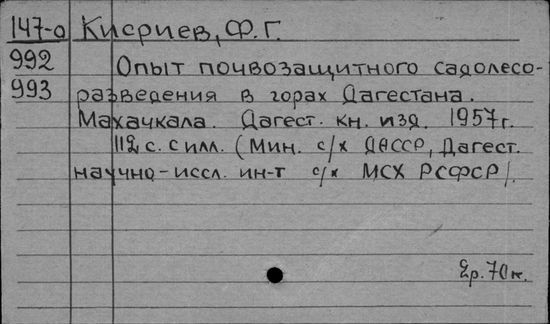 147-а Кисриев, Ф.Г.
992 Опыт почвозащитного садолесо-
993 разведения в горах Дагестана.
Махачкала. Дагест. кн. изд. 1957г.
112 с. с илл. (Мин. с/х ДАССР, Дагест.
научно-иссл. ин-т с/х МСХ РСФСР).
2р.70к.